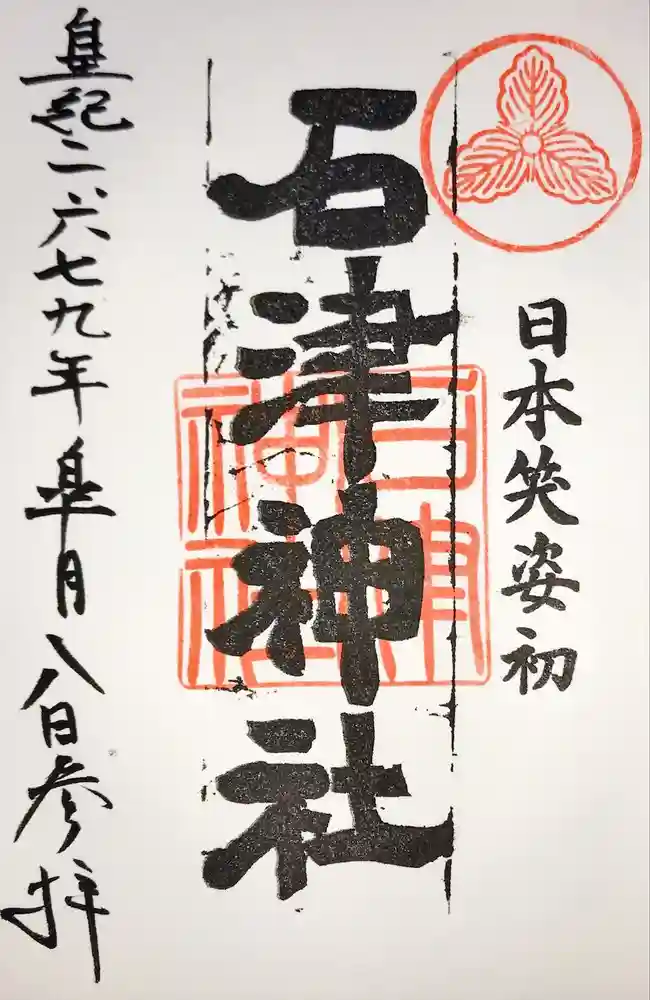 日本笑姿初
石津神社
石津神社
皇紀二六七九年皐月八日参拝